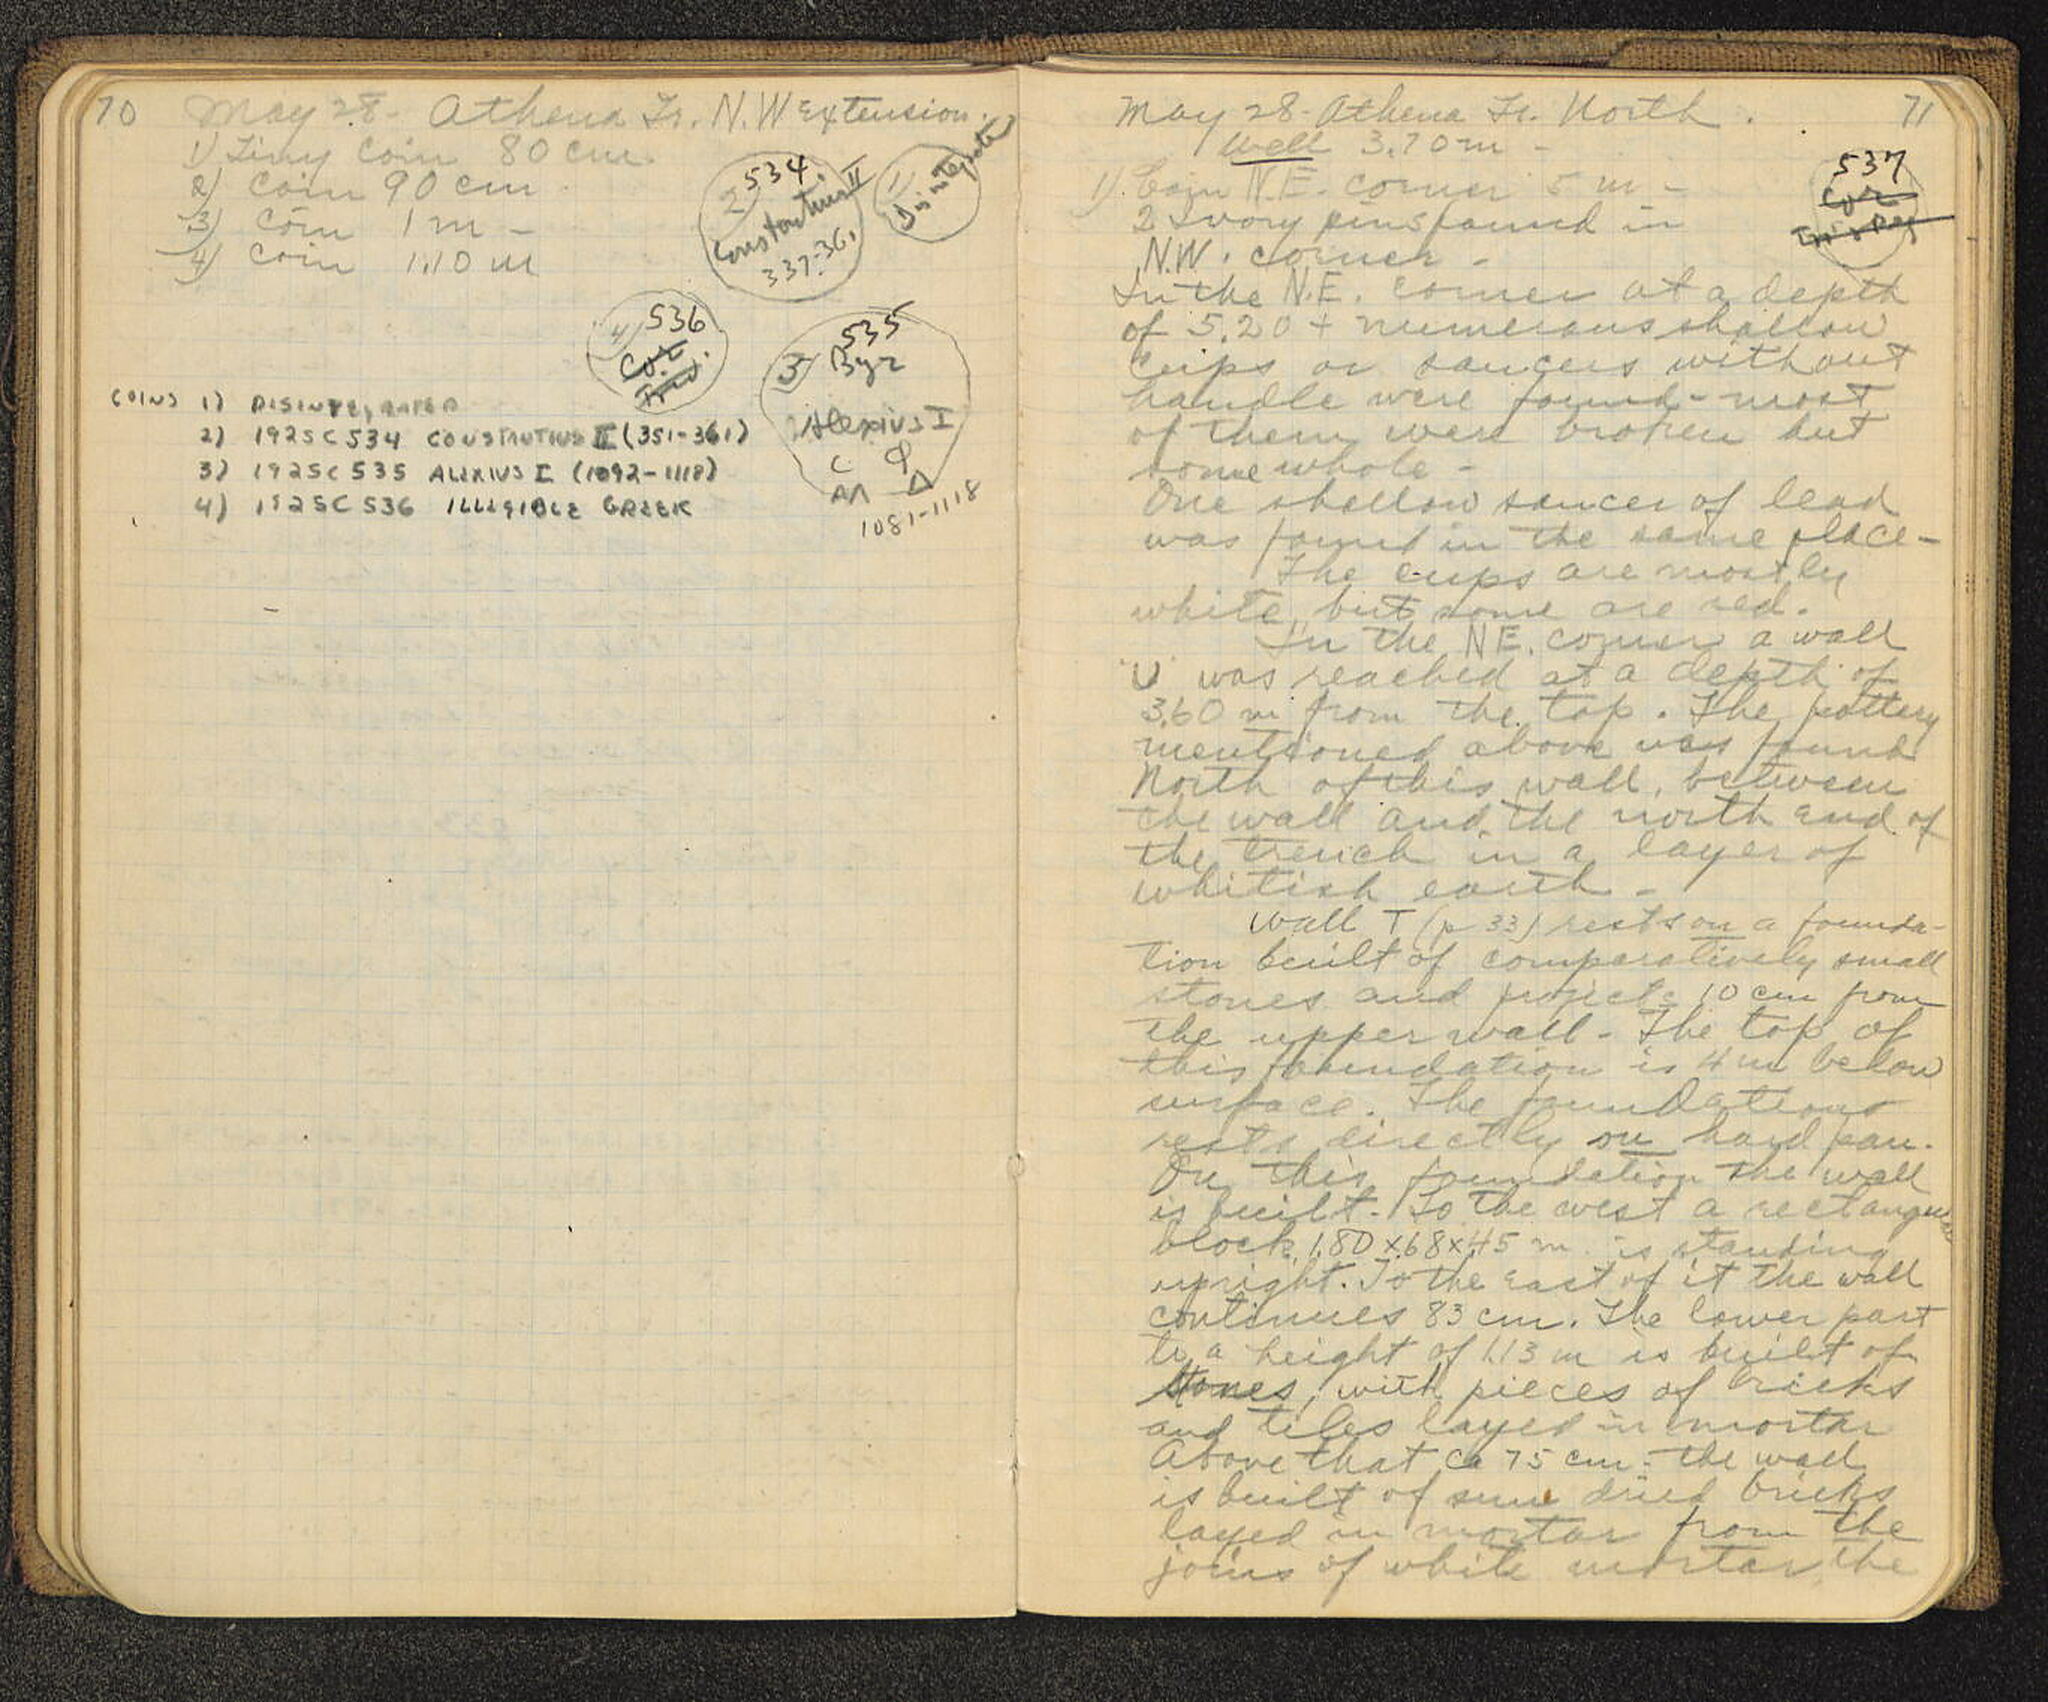 70 May 28 - Athena Tr. N.W Extension.
1) Tiny coin 80 cm.
2) coin 90 cm.
3) coin 1 m -
4) coin 1.10 m
2) 534
Constantius II
337-361
1)
Disintegrated
4) 536
3) 535
Byz
Alexius I
C Φ
ΑΛ Δ
1081-1118
COINS 1) DISINTEGRATED
2) 1925C534 CONSTANTIUS II (351-361)
3) 1925C535 ALEXIUS I (1092-1118)
4) 1925C536 ILLEGIBLE GREEK
May 28 - Athena Tr. North. 71
Well 3.70 m -
1) Coin N.E. corner 5 m -
537
Cor
2 Ivory pins found in
N.W. corner -
In the N.E. corner at a depth
of 5.20 + numerous shallow
cups or saucers without
handle were found - most
of them were broken but
some whole -
One shallow saucer of lead
was found in the same place -
The cups are mostly
white, but some are red.
In the NE. corner a wall
"U" was reached at a depth of
3.60 m from the top. The pottery
mentioned above was found
North of this wall, between
the wall and the north end of
the trench in a layer of
whitish earth -
Wall T (p 33) rests on a founda-
tion built of comparatively small
stones and projects 10 cm from
the upper wall - The top of
this foundation is 4 m below
surface. The foundations
rests directly on hard pan.
On this foundation the wall
is built. To the west a rectangular
block 1.80 x .68 x .45 m. is standing
upright. To the east of it the wall
continues 83 cm. The lower part
to a height of 1.13 m is built of
stones, with pieces of bricks
and tiles layed in mortar
Above that ca 75 cm - the wall
is built of sun dried bricks
layed in mortar from the
joins of white mortar the